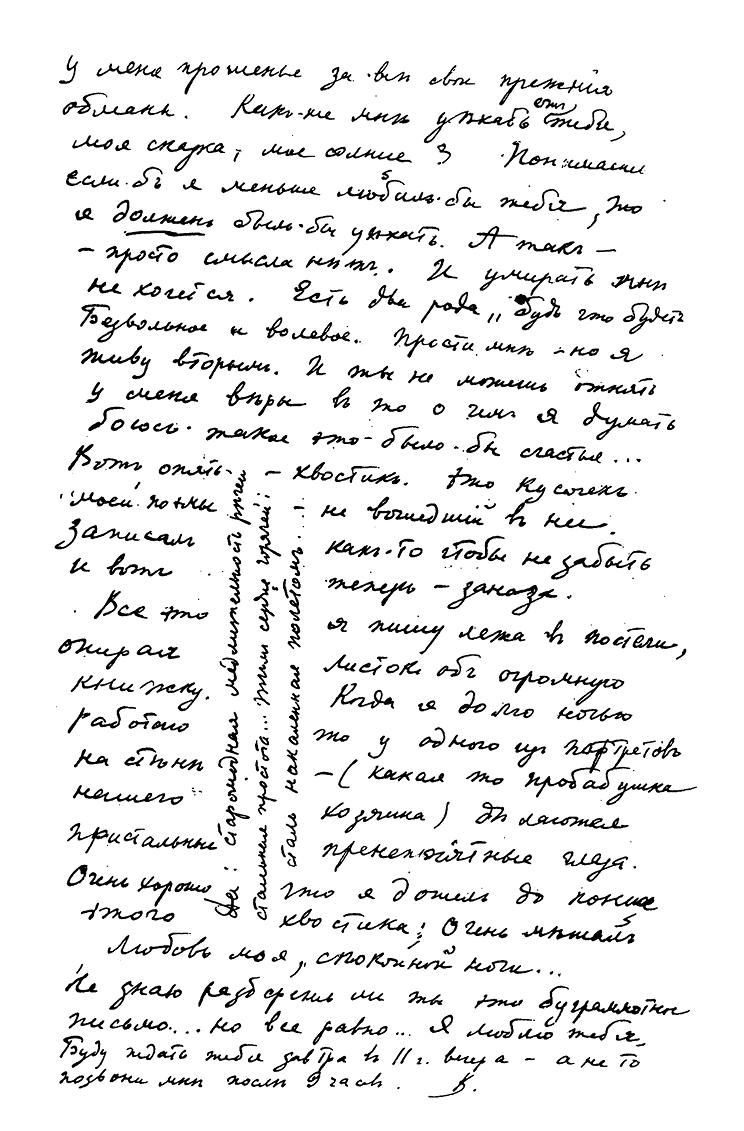 у меня прощенье за всѣ свои прежнія
обманы. Какъ-же мнѣ уѣхать отъ тебя,
моя сказка, мое солнце? Понимаешь
если-бъ я меньше любилъ-бы тебя, то
я долженъ былъ-бы уѣхать. А такъ –
– просто смысла нѣтъ. И умирать мнѣ
не хочется. Есть два рода „будь что будетъ
Безвольное и волевое. Прости мнѣ – но я
живу вторымъ. И ты не можешь отнять
у меня вѣры въ то о чемъ я думать
боюсь – такое это было-бы счастье...
Вотъ опять – хвостикъ. Это кусочекъ
моей поэмы не вошедшій въ нее.
Записалъ какъ-то чтобы не забыть
и вотъ теперь – заноза.
Все это я пишу лежа въ постели,
опирая листокъ объ огромную
книжку. Когда я долго ночью
работаю то у одного изъ портретовъ
на стѣнѣ – (какая то пробабушка
нашего хозяина) дѣлаются
пристальные пренепріятные глаза.
Очень хорошо что я дошелъ до конца
этого хвостика; Очень мѣшалъ
Любовь моя, спокойной ночи...
Не знаю разберешь ли ты это безграмотное
письмо... но все равно... Я люблю тебя,
Буду ждать тебя завтра въ 11 г. вечера – а не то
позвони мнѣ послѣ 9 часовъ. В.
Да: старомодная медлительность рѣчей
стальная простота... Тѣмъ сердце горячѣй:
сталь накаленная полетомъ...